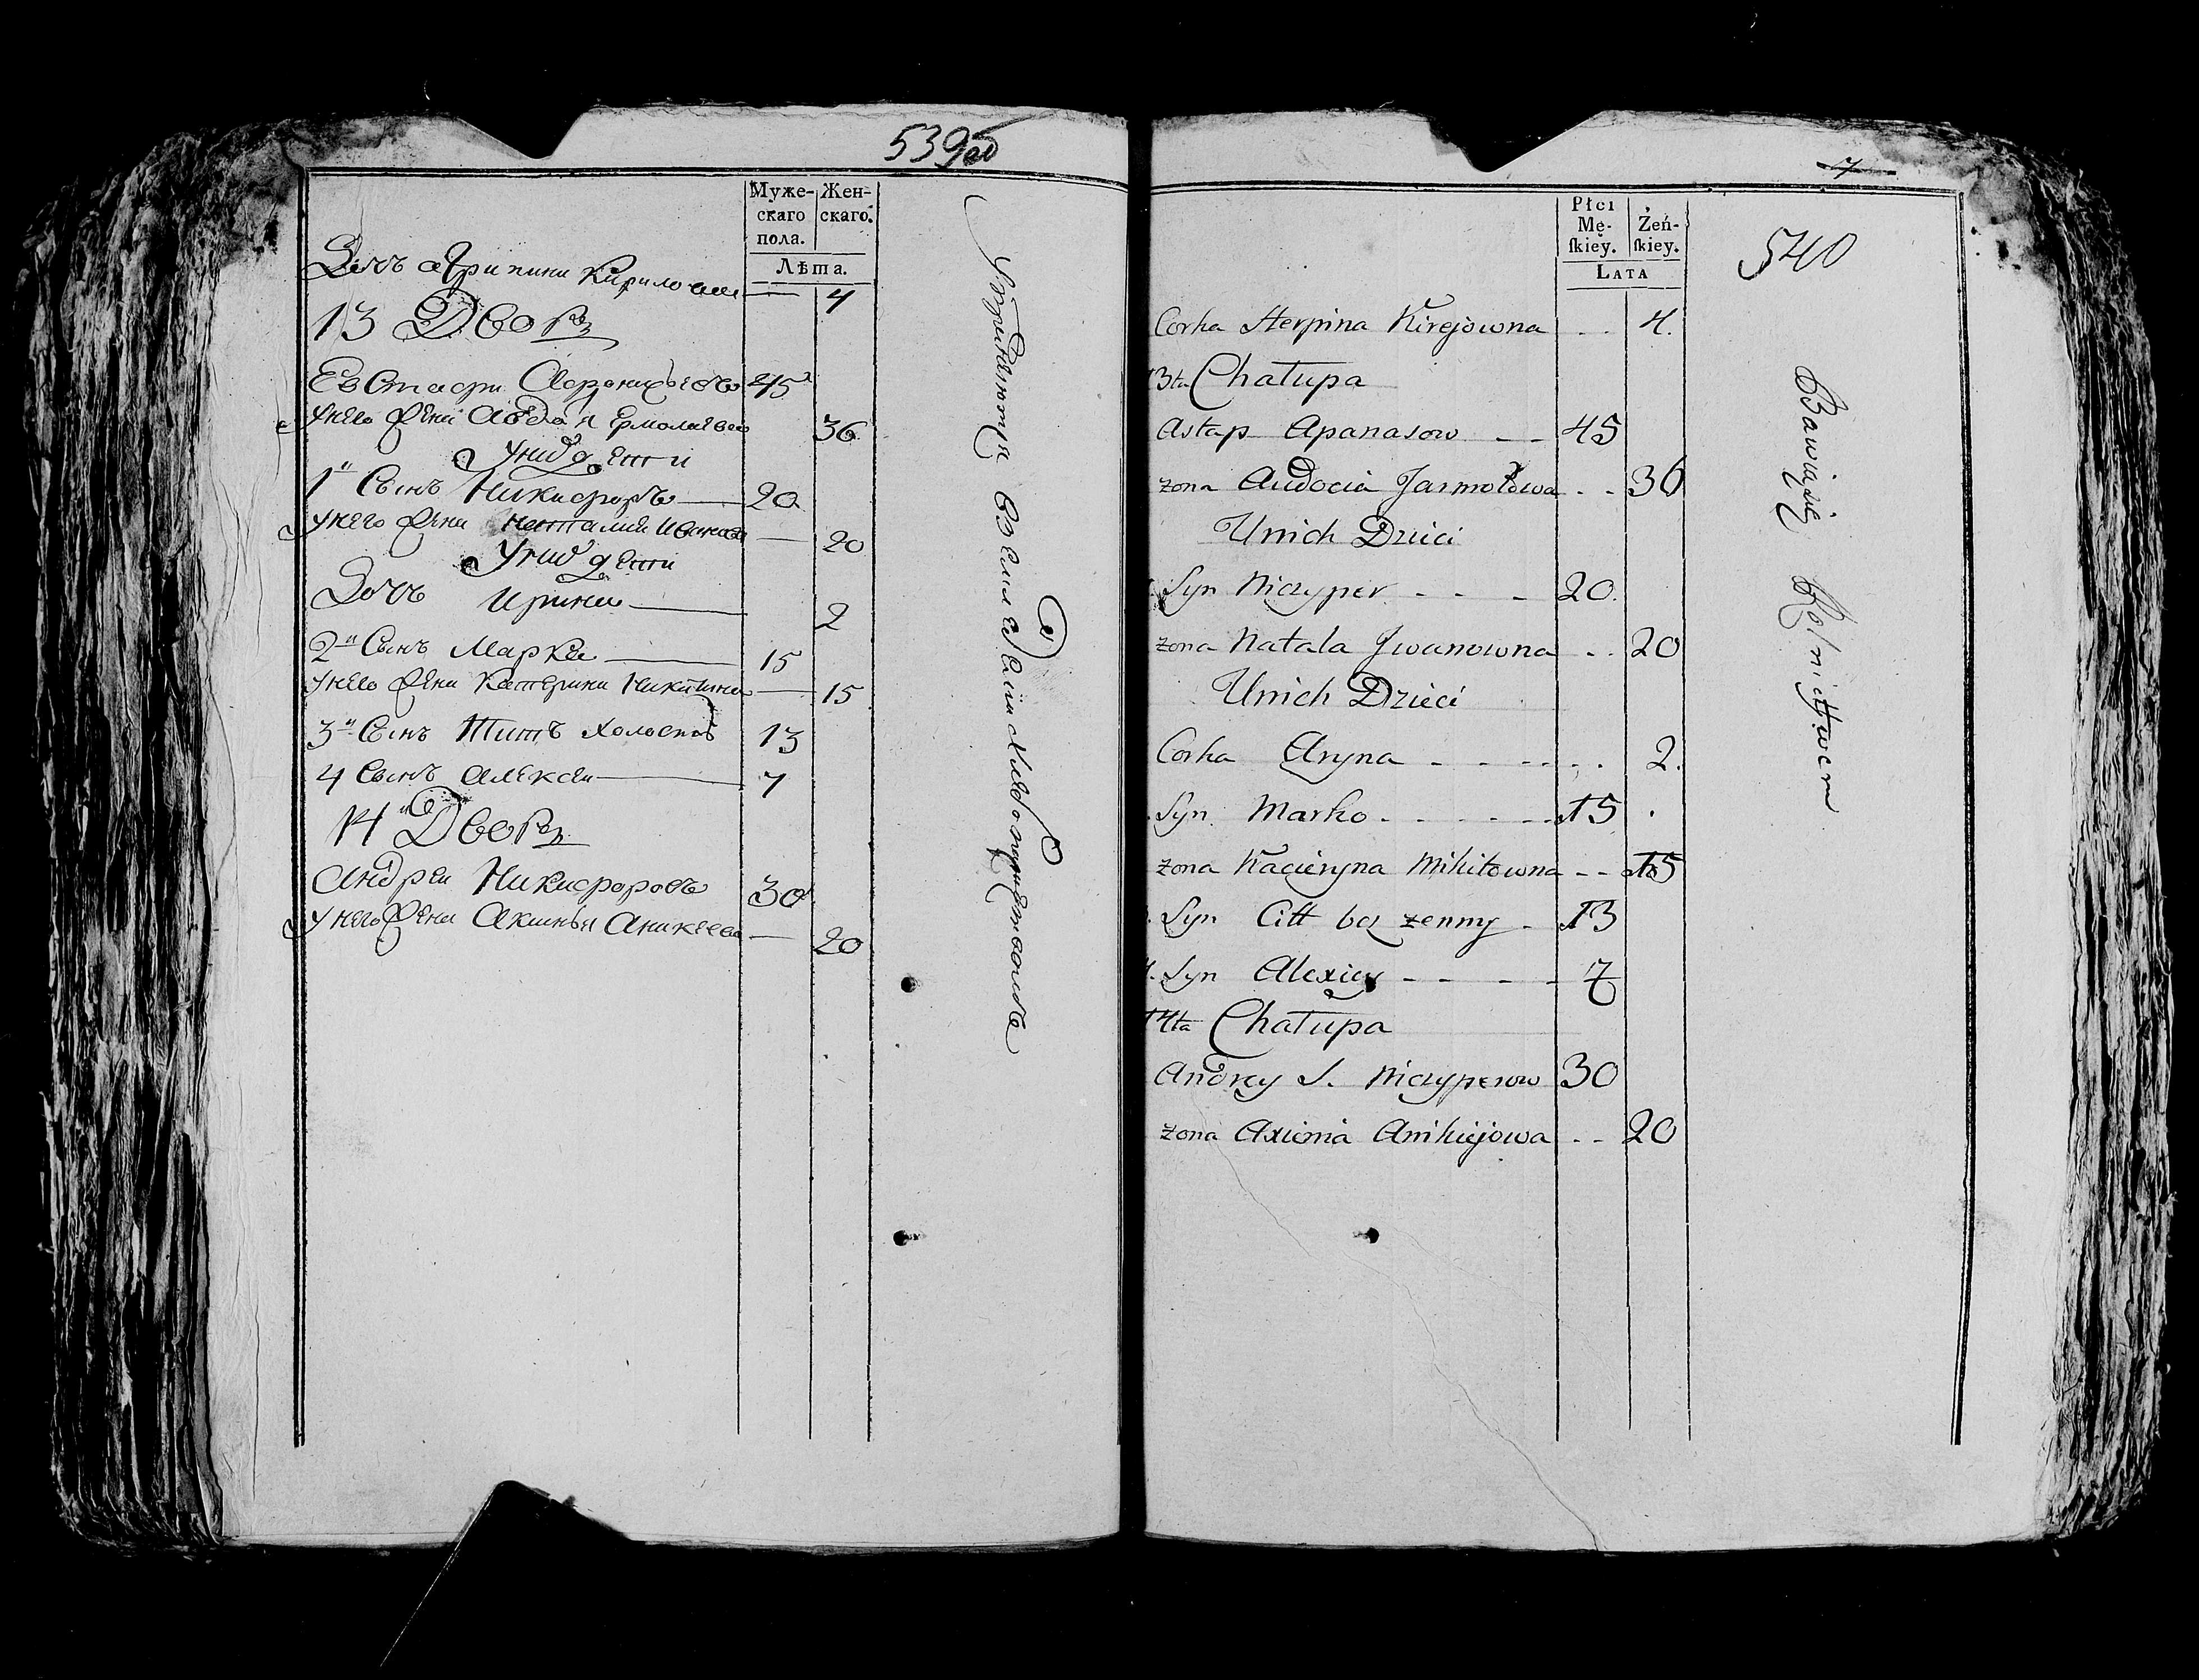 539об
Муже-скаго пола. Жен-скаго.
Лѣта.
Дочь агрипина Кирилова 4
13 Дворъ
Евстафи Афонасьевъ 45
Унего жена Авдотя Ермолаева 36
Уних дети
1й Сынъ Никифоръ 20
Унего жена Наталия Иванова 20
Уних дети
Дочь Ирина 2
2й Сынъ Марка 15
Унего жена Катерина Никитина 15
3й Сынъ Титъ холостъ 13
4 Сынъ Алексеи 7
14й Дворъ
Андреи Никифоровъ 30
Унего жена Аксинья Аникеева 20
Упражняются
7
540
Płci Mę-ſkiey. Żeń-ſkiey.
LATA
Corka Herpina Kirejowna 4.
13ta Chałupa
Astap Apanasow 45
zona Audocia Jarmołowa 36
Unich Dzieci
Syn Niczyper 20.
zona Natala Jwanowna 20
Unich Dzieci
Corka Aryna 2.
Syn Marko 15
zona Kacieryna Mikitowna 15
Syn Citt bez zenny 13
4. Syn Alexiey 7
14ta Chałupa
Andrey S. Niczyperow 30
zona Axienia Anikiejowa 20
Bawiąsię Rolnictwem